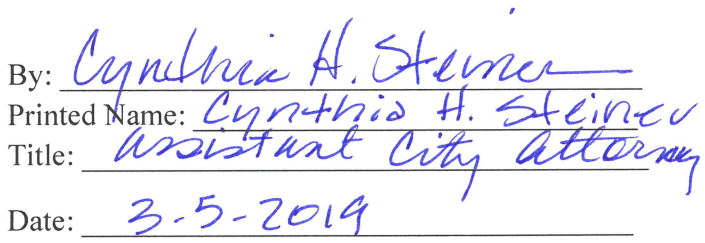 By: Cynthia H. Steiner
Printed Name: Cynthia H. Steiner
Title: Assistant City Attorney
Date: 3-5-2019